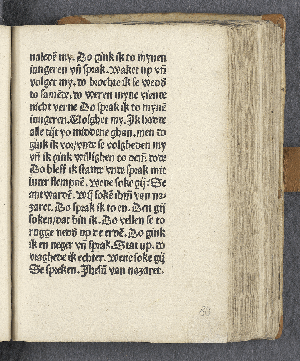 naleden my. Do gink ik to mynen
iungeren vñ sprak. waket up vñ
volget my. to brochte ik se weds
to samēde. to weren myne viende
nicht verne Do sprak ik to mynē
iungeren. Volghet my. Ik hadde
alle tijt yo middene ghan. men to
gink ik vor vnde se volgheden my
vñ ik gink willighen to dem dode
Do bleff ik stande vnde sprak mit
luter stempnē. Wene soke gij. Se
ant wardē. Wij sokē ihm̄ van na-
zaret. Do sprak ik to en. Den gij
soken dat bin ik. Do vellen se to
rugge neds up de erdē. Do gink
ik en neger vñ sprak. Stat up. to
vraghede ik echter. wene soke gij
Se spreken. Ihm̄ van nazaret.